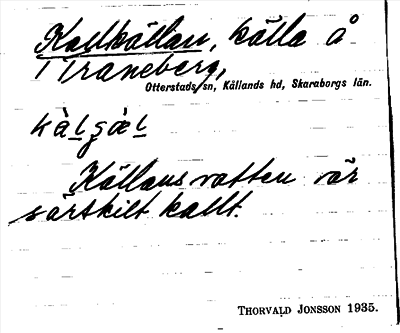 Kallkällan, källa å
1 Traneberg,
Otterstads sn, Kållands hd, Skaraborgs län.
Källans vatten är
särskilt kallt.
THORVALD JONSSON 1935.